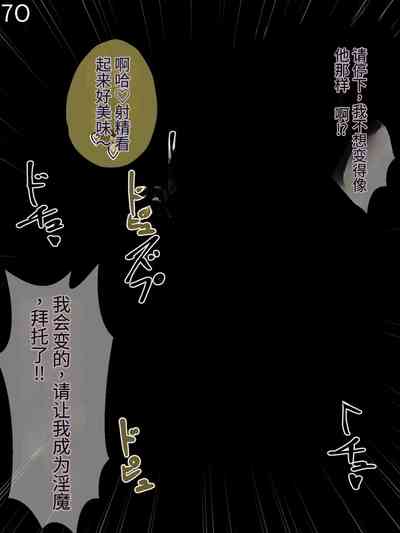 70
请停下，我不想变得像
他那样 啊!?
啊哈♡射精看
起来好美味～♡
ドチュ♡
ドピュ
ズプ
我会变的，请让我成为淫魔
，拜托了!!
ドピュ
チュ♡